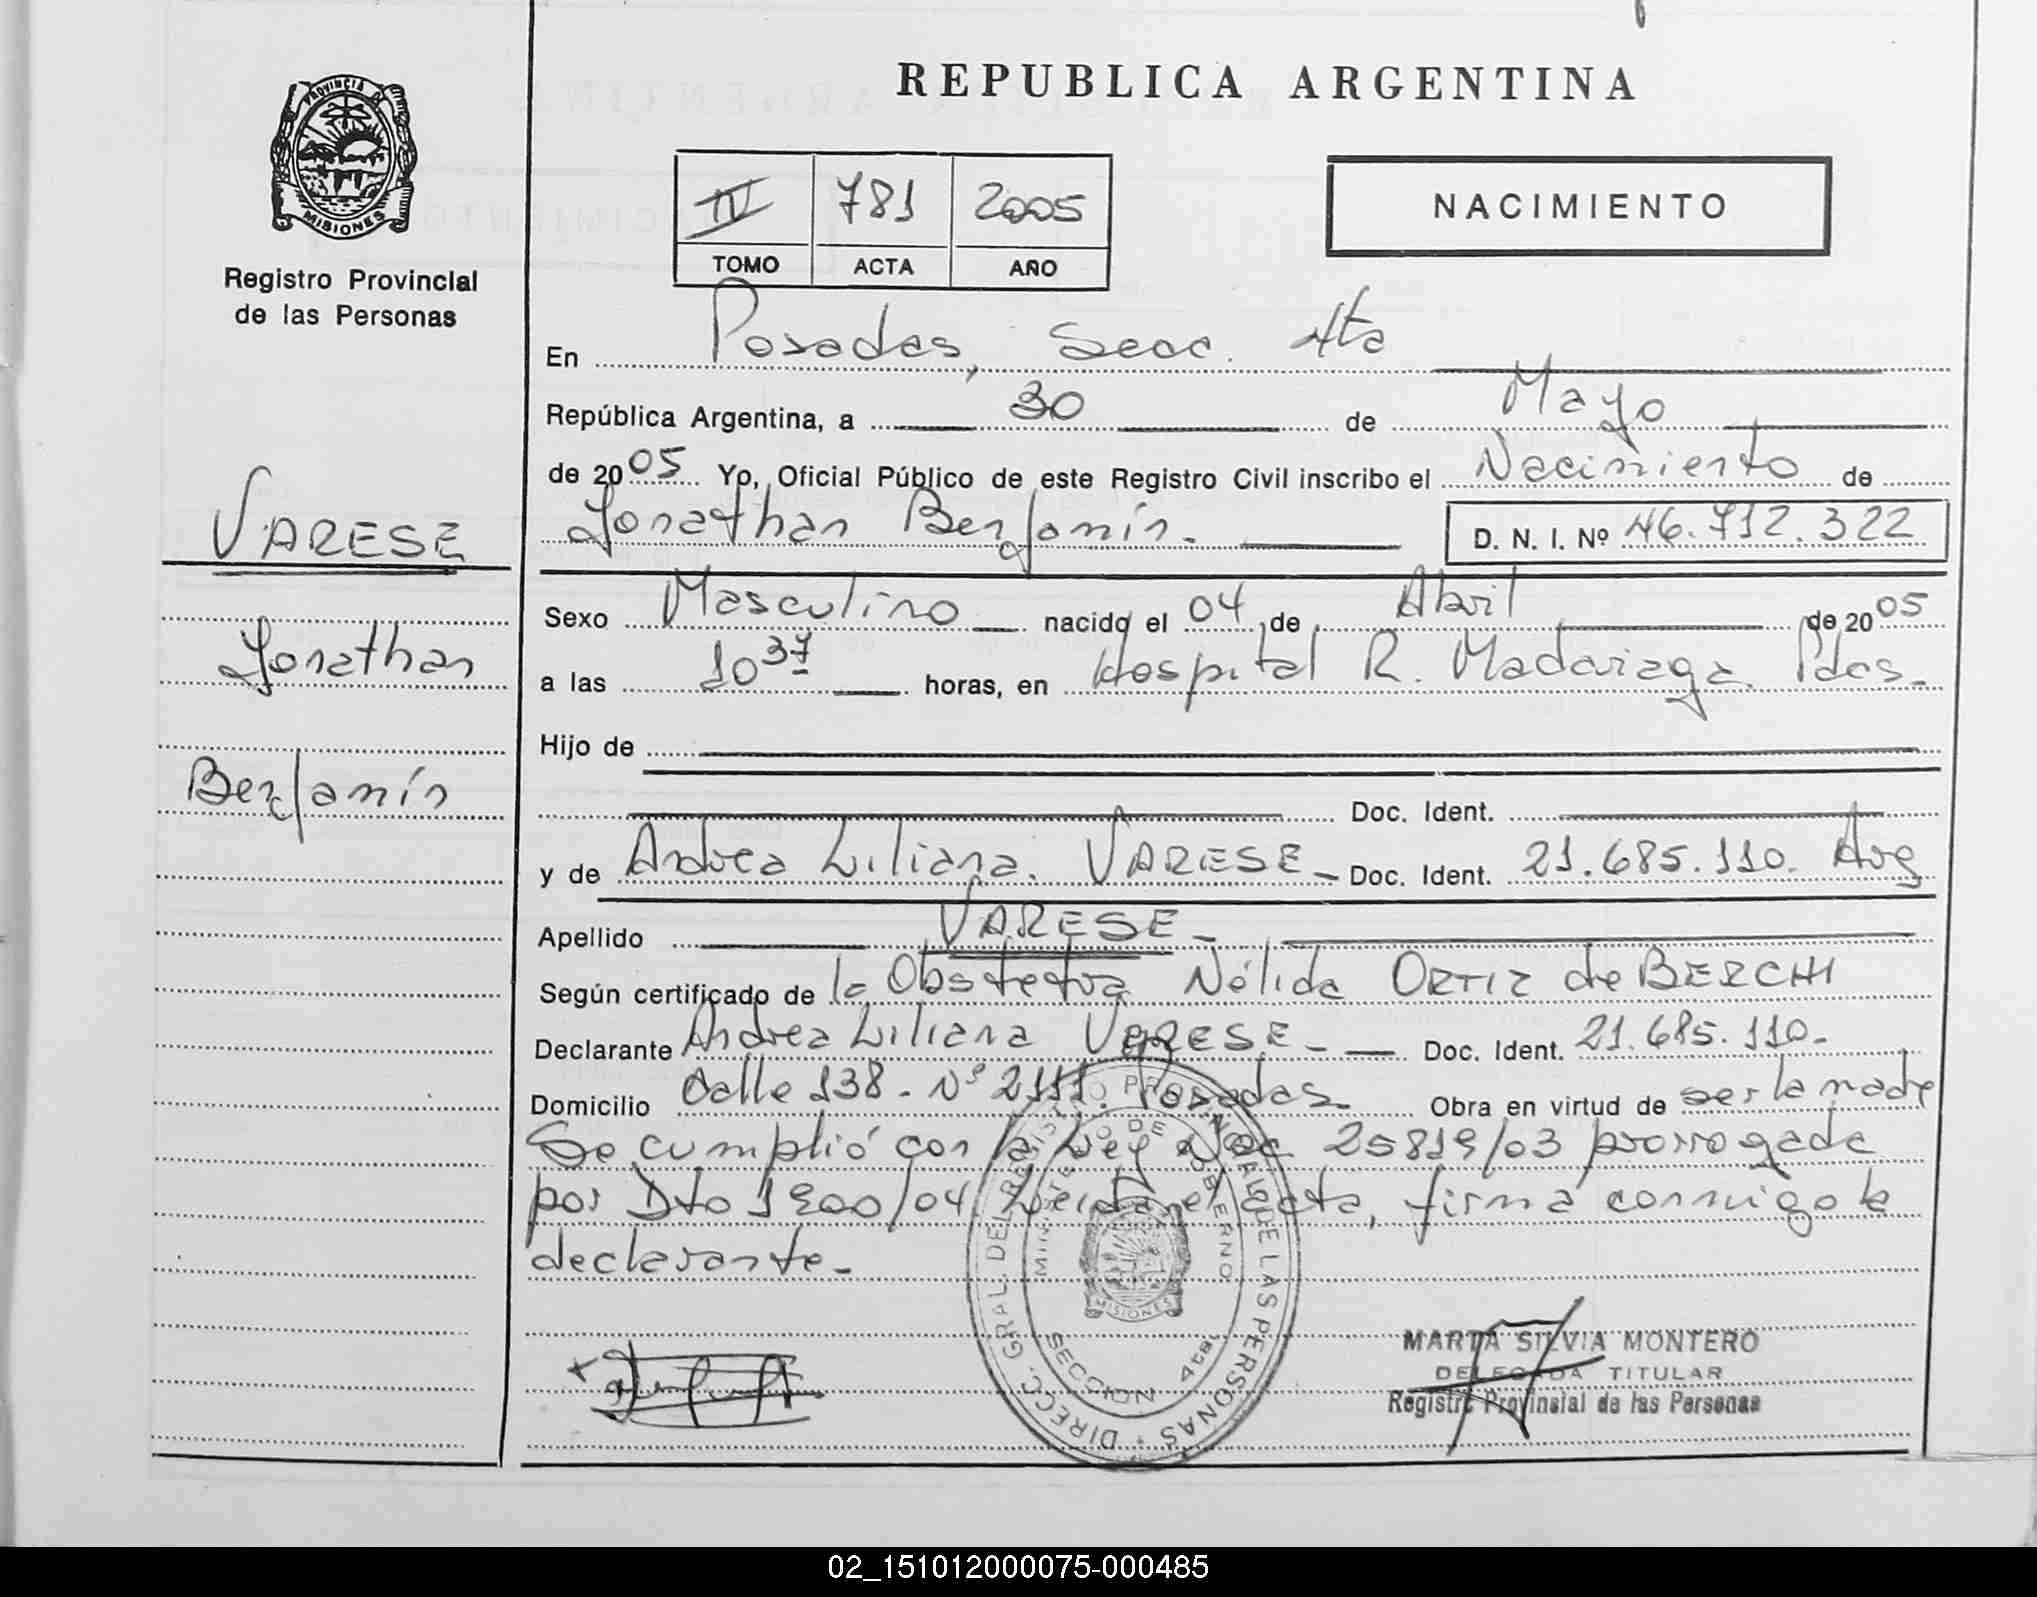 REPUBLICA ARGENTINA
PROVINCIA D
MISIONES
Registro Provincial
de las Personas
IV 781 2005
TOMO ACTA AÑO
NACIMIENTO
En Posadas, Secc. 4ta
República Argentina, a 30 de Mayo
de 2005 Yo, Oficial Público de este Registro Civil inscribo el Nacimiento de
Jonathan Benjamín.
D. N. I. Nº 46.712.322
VARESE
Jonathan
Benjamín
Sexo Masculino nacido el 04 de Abril de 2005
a las 10 37 horas, en Hospital R. Madariaga. Pdas.
Hijo de
Doc. Ident.
y de Andrea Liliana. VARESE - Doc. Ident. 21.685.110. Arg
Apellido VARESE -
Según certificado de la Obstetra Nélida ORTIZ de BERCHI
Declarante Andrea Liliana VARESE - Doc. Ident. 21.685.110.-
Domicilio Calle 138 - Nº 2111. Posadas Obra en virtud de ser la madre
Se cumplió con la Ley Nac 25819/03 prorrogada
por Dto 1900/04. Leida el acta, firma conmigo la
declarante.-
DIRECC. GRAL. DEL REGISTRO PROVINCIAL DE LAS PERSONAS
MINISTERIO DE GOBIERNO
MISIONES
SECCION 4ta.
MARTA SILVIA MONTERO
DELEGADA TITULAR
Registro Provinsial de las Personas
02_151012000075-000485